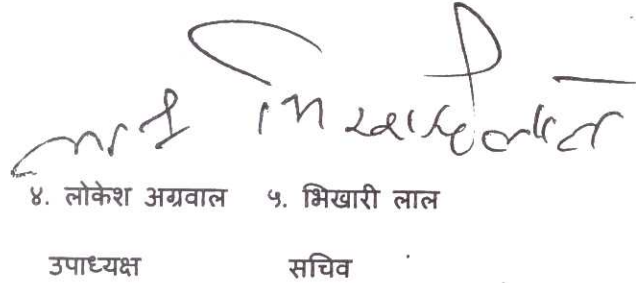 भिखारीलाल
४. लोकेश अग्रवाल ५. भिखारी लाल
उपाध्यक्ष सचिव